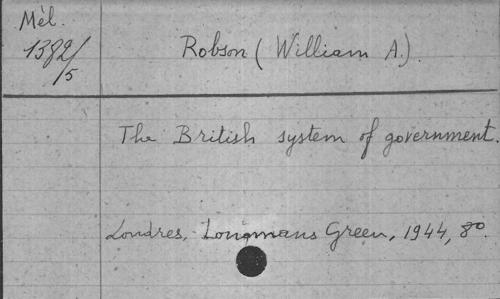 Mél.
1382/5
Robson (William A.)
The British system of government.
Londres, Longmans Green, 1944, 8º.